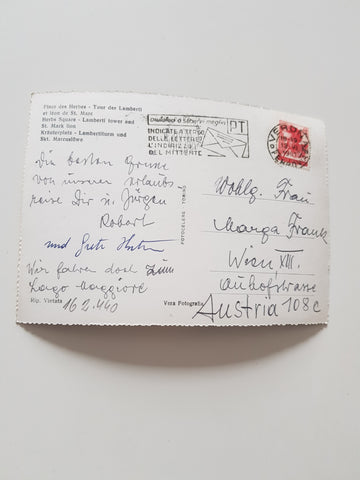 Place des Herbes - Tour des Lamberti
et léon de St. Marc
Herbs Square - Lamberti tower and
St. Mark lion
Kräuterplatz - Lambertiturm und
Skt. Marcuslöwe
INDICATE A TERGO
DELLE LETTERE
L'INDIRIZZO
DEL MITTENTE
PT
VERONA
Die besten Grüsse
von unserer Urlaubs
reise Dir in
Robert
und Gute
Wir fahren doch zum
Lago Maggiore
Rip. Vietata
Vera Fotografia
FOTOCELERE TORINO
Wohlg. Frau
Marga Frank
Wien, XIII.
Auhofstrasse
108c
Austria